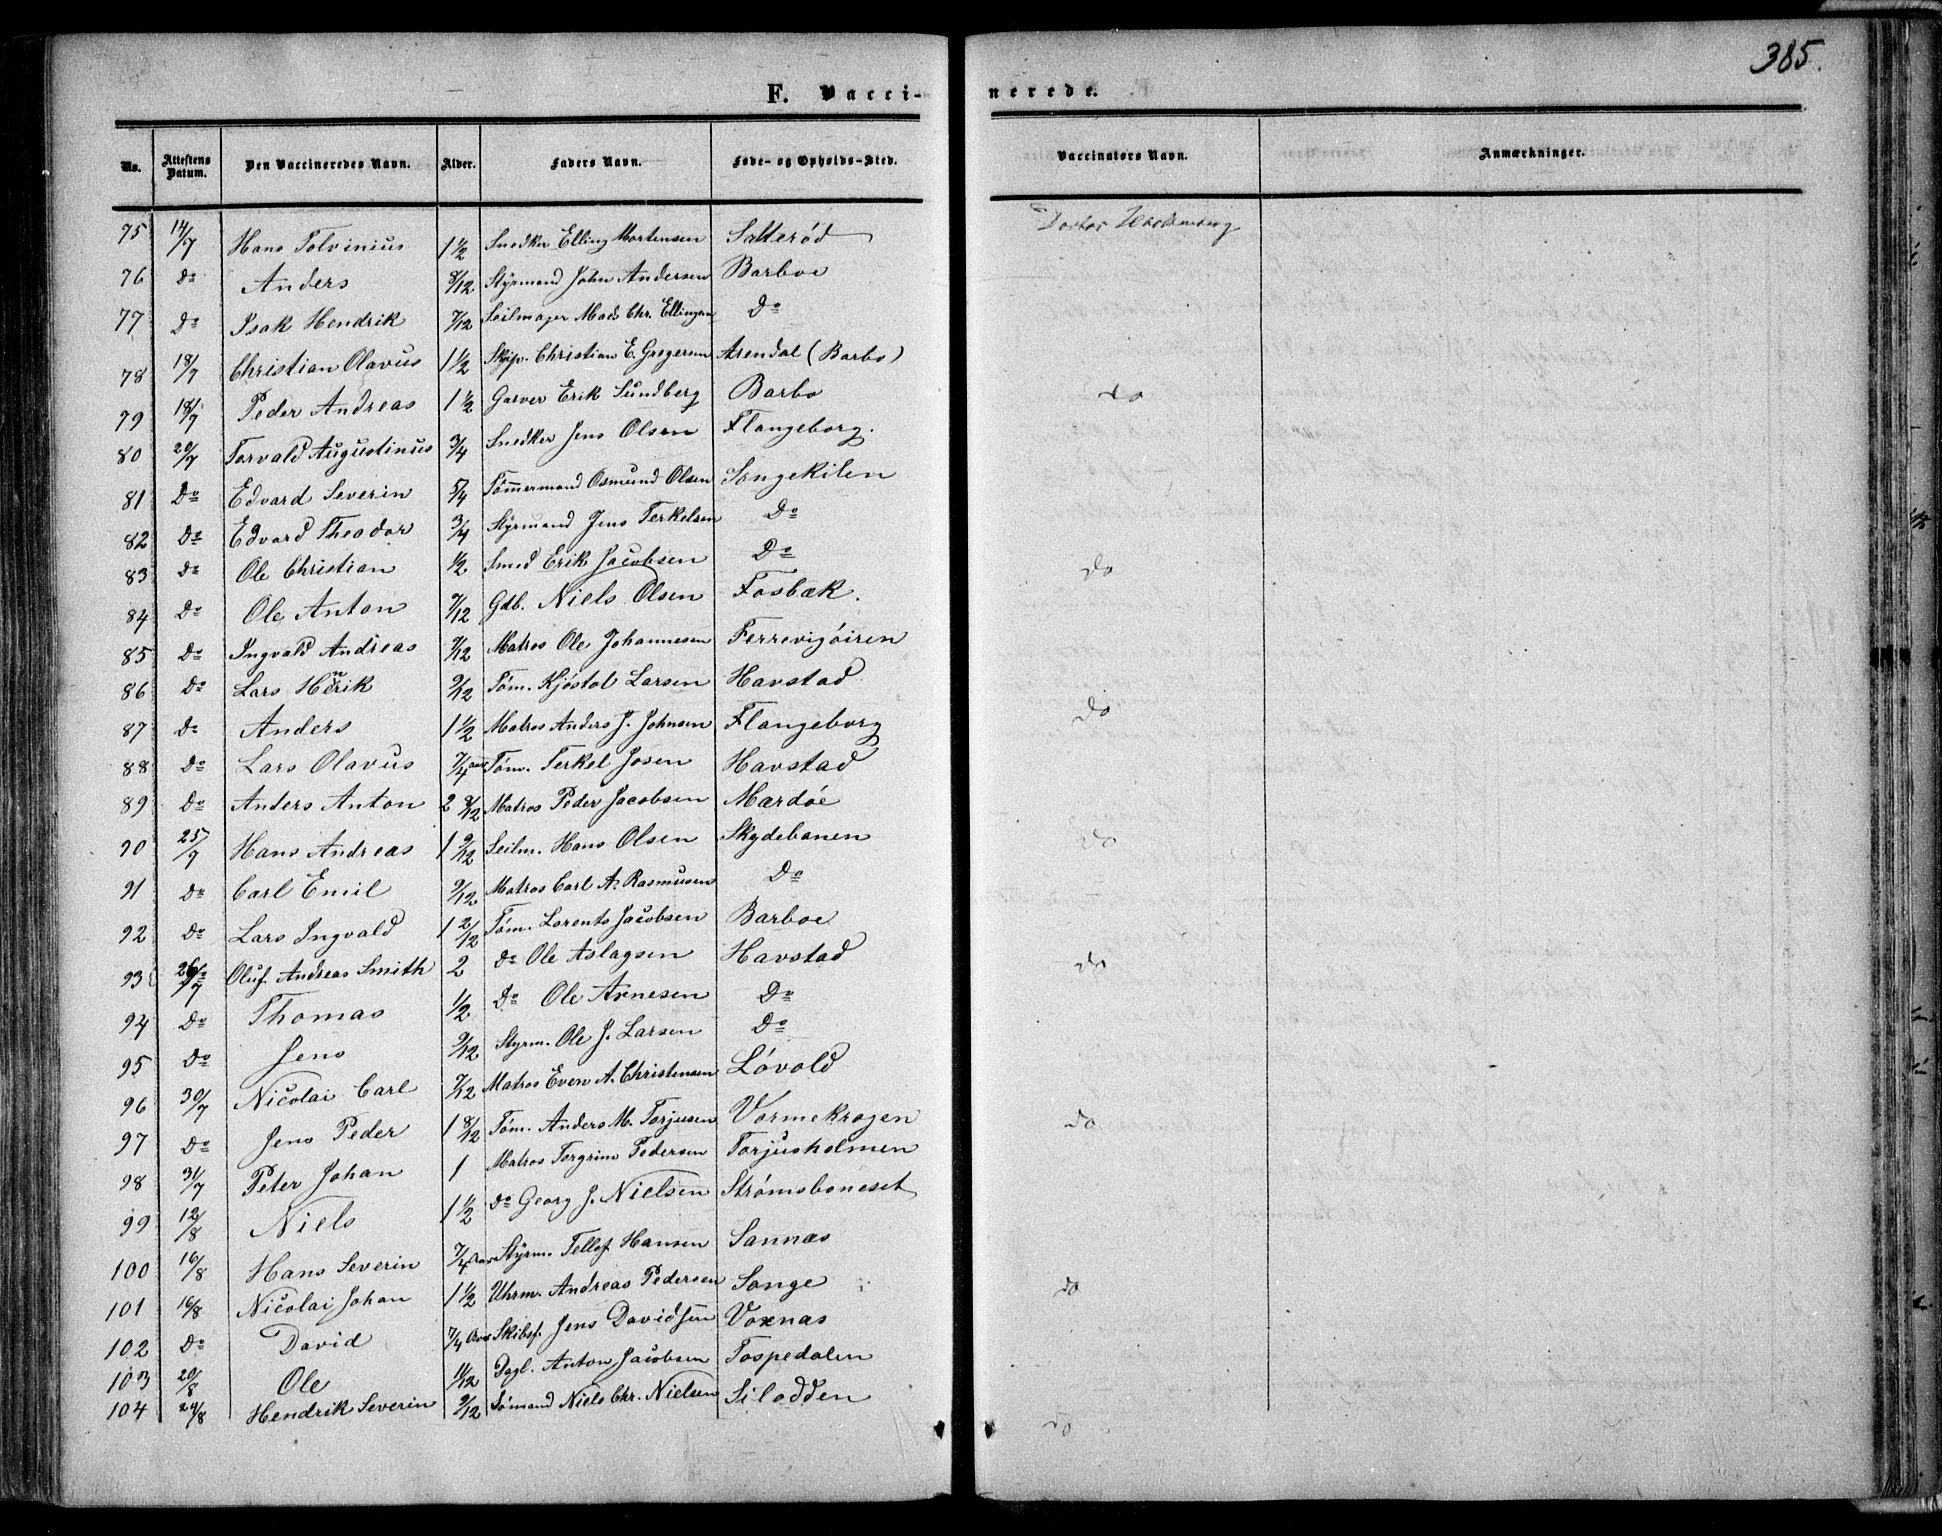 385.
F. Vaccinerede.
No. Attestens Datum. Den Vaccineredes Navn. Alder. Faders Navn. Føde- og Opholds-Sted. Vaccinators Navn. Anmærkninger.
75 14/7 Hans Tolvinius 1 1/2 Snedker Elling Mortensen Salterød Doctor
76 Do Anders 8/12 Styrmand John Andersen Barboe
77 Do Isak Hendrik 7/12 Seilmager Mads Chr. Ellingsen Do
78 18/7 Christian Olavus 1 1/2 Skip. Christian E. Gregersen Arendal (Barbo)
79 18/7 Peder Andreas 1 1/2 Garver Erik Sundberg Barbo do
80 20/7 Torvald Augustinus 3/4 Snedker Jens Olsen Flangeborg.
81 Do Edvard Severin 5/4 Tømmermand Osmund Olsen Songekilen
82 Do Edvard Theodor 3/4 Styrmand Jens Terkelsen Do
83 Do Ole Christian 1/2 Smed Erik Jacobsen Do do
84 Do Ole Anton 7/12 Gdb. Niels Olsen Fosbæk.
85 Do Ingvald Andreas 7/12 Matros Ole Johannesen Ferrevigøiren
86 Do Lars Henrik 9/12 Tøm. Kjøstol Larsen Havstad
87 Do Anders 1 1/2 Matros Anders J. Johnsen Flangeborg do
88 Do Lars Olavus 7/4 aar Tøm. Terkel Josen Havstad
89 Do Anders Anton 2 8/12 Matros Peder Jacobsen Mærdøe
90 25/7 Hans Andreas 1 9/12 Seilm. Hans Olsen Skydebanen do
91 Do Carl Emil 9/12 Matros Carl A. Rasmusen Do
92 Do Lars Ingvald 1 2/12 Tøm. Lorents Jacobsen Barboe
93 26/7 Oluf Andreas Smith 2 do Ole Aslagsen Havstad do
94 Do Thomas 1/2 Do Ole Arnesen Do
95 Do Jens 9/12 Styrm. Ole J. Larsen Do
96 30/7 Nicolai Carl 7/12 Matros Even A. Christensen Løvold
97 Do Jens Peder 1 8/12 Tøm. Anders M. Torjusen Vormekrogen do
98 31/7 Peter Johan 1 Matros Torgrim Pedersen Torjusholmen
99 12/8 Niels 1 1/2 do Georg J. Nielsen Strømsboneset
100 16/8 Hans Severin 7/4 Aar Styrm. Tellef Hansen Sannæs
101 16/8 Nicolai Johan 1 1/2 Uhrm. Andreas Pedersen Songe do
102 Do David 7/4 Aar Skibsf. Jens Davidsen Voxnæs
103 20/8 Ole 11/12 Dagl. Anton Jacobsen Tospedalen
104 24/8 Hendrik Severin 9/12 Sømand Niels Chr. Nielsen Silodden do